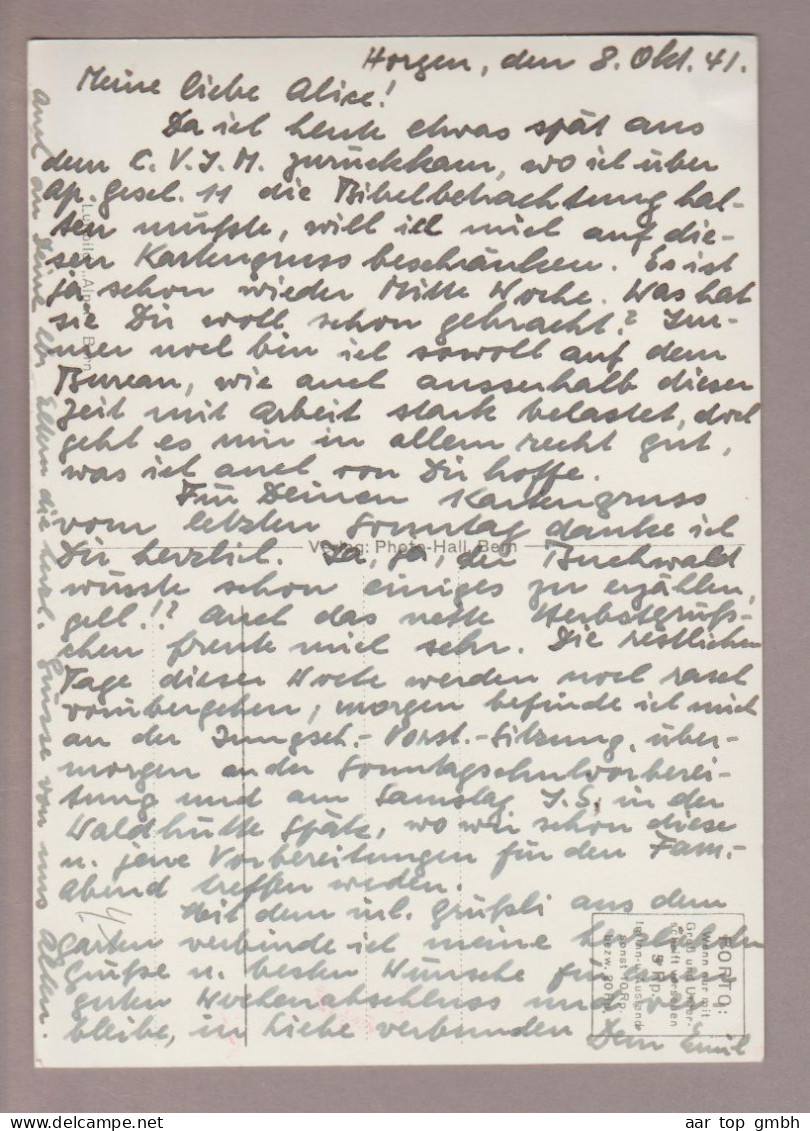 Horgen, den 8. Okt. 41.
Meine liebe Alice!
Da ich heute etwas spät aus
dem C.V.J.M. zurückkam, wo ich über
Ap. gesch. 11 die Bibelbetrachtung hal-
ten mußte, will ich mich auf die-
sen Kartengruss beschränken. Es ist
ja schon wieder Mitte Woche. Was hat
sie Dir wohl schon gebracht? Im-
mer noch bin ich sowohl auf dem
Bureau, wie auch ausserhalb dieser
Zeit mit Arbeit stark belastet, doch
geht es mir in allem recht gut,
was ich auch von Dir hoffe.
Für Deinen Kartengruss
vom letzten Sonntag danke ich
Dir herzlich. Ja, ja, der Buchwald
wüsste schon einiges zu erzählen,
gell!!? Auch das nette Herbstgrüß-
chen freute mich sehr. Die restlichen
Tage dieser Woche werden noch rasch
vorübergehen, morgen befinde ich mich
an der Jungsch.-Vorst.-Sitzung, über-
morgen an der Sonntagschulvorberei-
tung und am Samstag J.S. in der
Waldhütte Spätz, wo wir schon diese
u. jene Vorbereitungen für den Fam.-
Abend treffen werden.
Mit dem inl. Grüßli aus dem
Garten verbinde ich meine herzlichsten
Grüße u. besten Wünsche für einen
guten Wochenabschluss und ver-
bleibe, in Liebe verbunden Dein Emil
Auch an Deine lb. Eltern die herzl. Grüsse von uns Allen.
Verlag: Photo-Hall, Bern
PORTO:
Wenn nur mit
Gruß und Unter-
schrift versehen
5 Rp.
sonst 10 Rp.
bezw. 20 Rp.
aar top gmbh